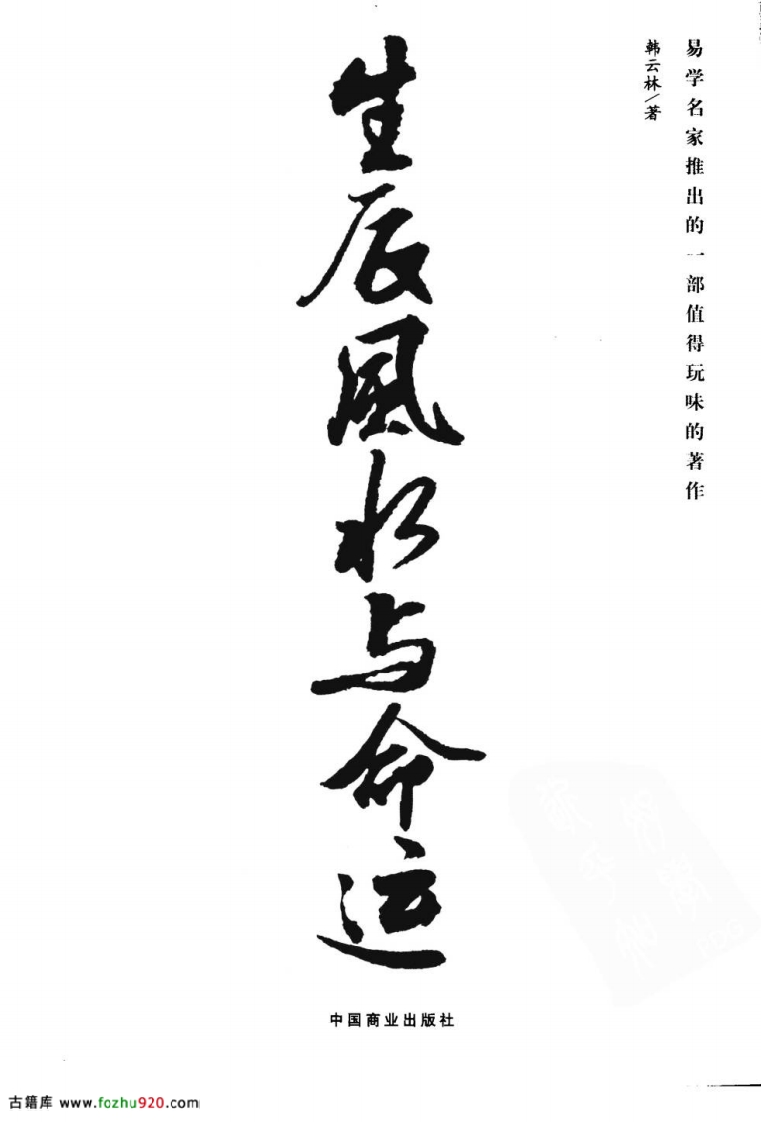 易学名家推出的一部值得玩味的著作
韩云林/著
生辰风水与命运
中国商业出版社
古籍库 www.fozhu920.com